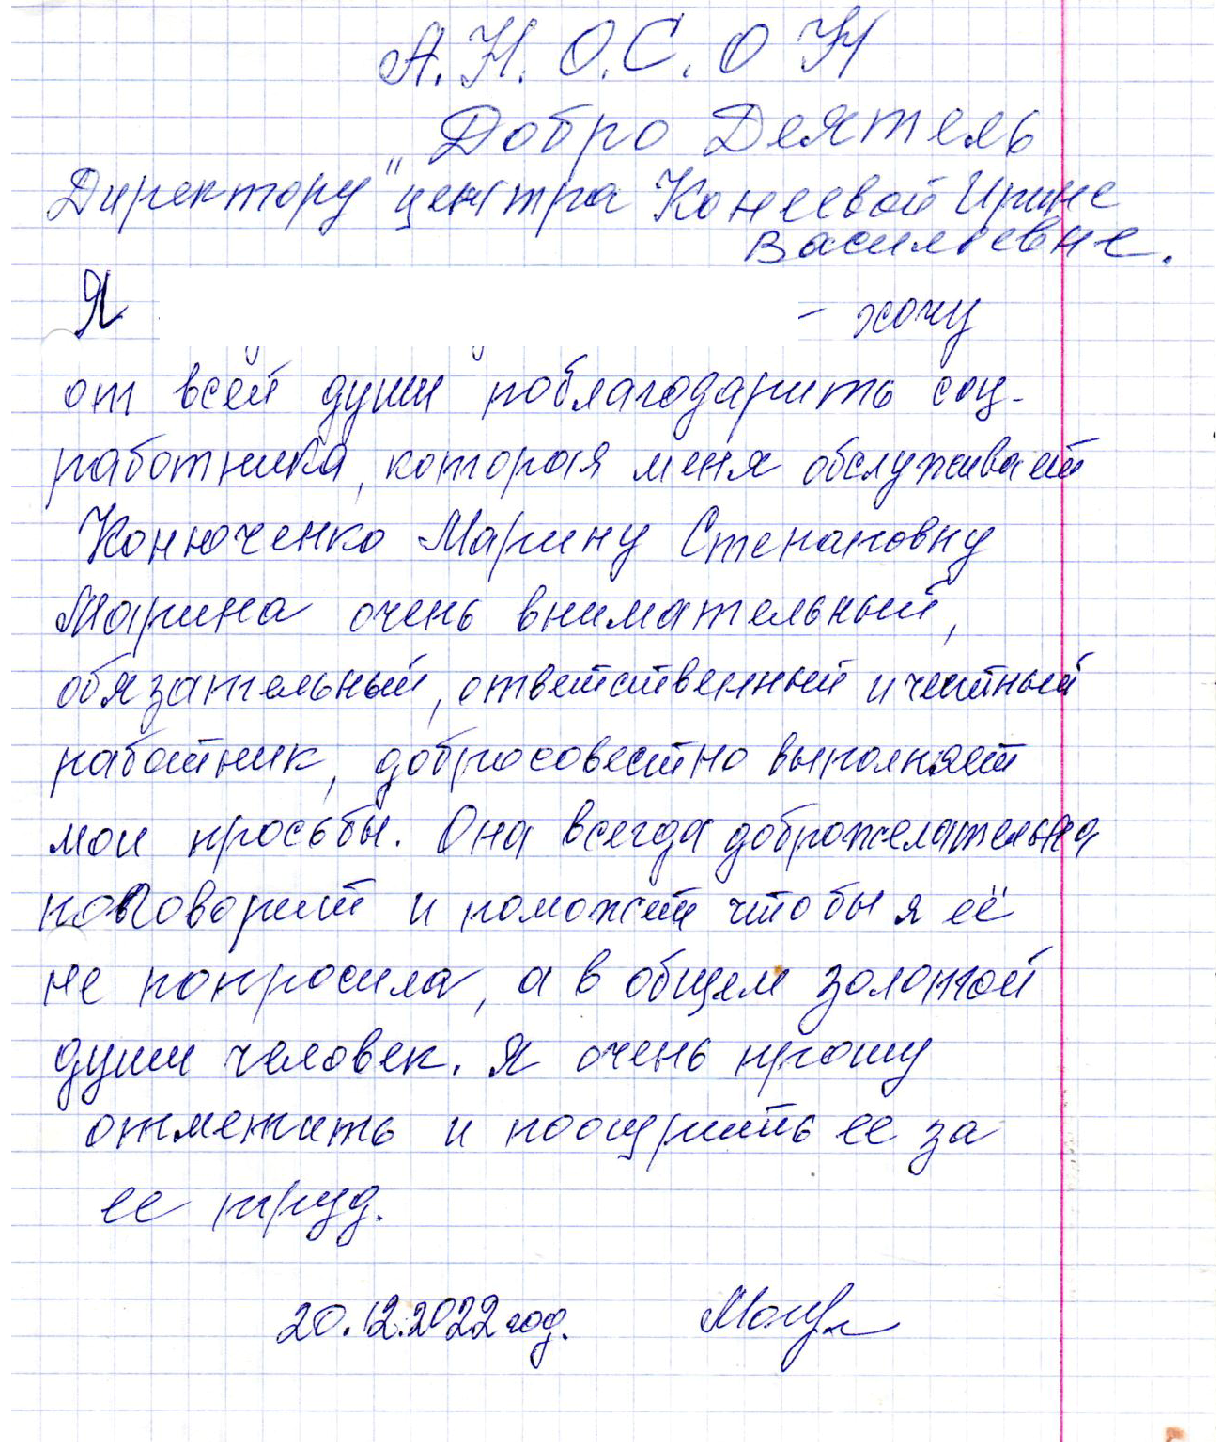 А.Н.О.С.О Н
Добро Деятель
Директору "центра Конеевой Ирине
Васильевне.
Я - хочу
от всей души поблагодарить соц-
работника, которая меня обслуживает
Конюченко Марину Степановну
Марина очень внимательный,
обязательный, ответственный и честный
работник, добросовестно выполняет
мои просьбы. Она всегда доброжелательна
поговорит и поможет что бы я её
не попросила, а в общем золотой
души человек. Я очень прошу
отметить и поощрить ее за
ее труд.
20.12.2022 год.